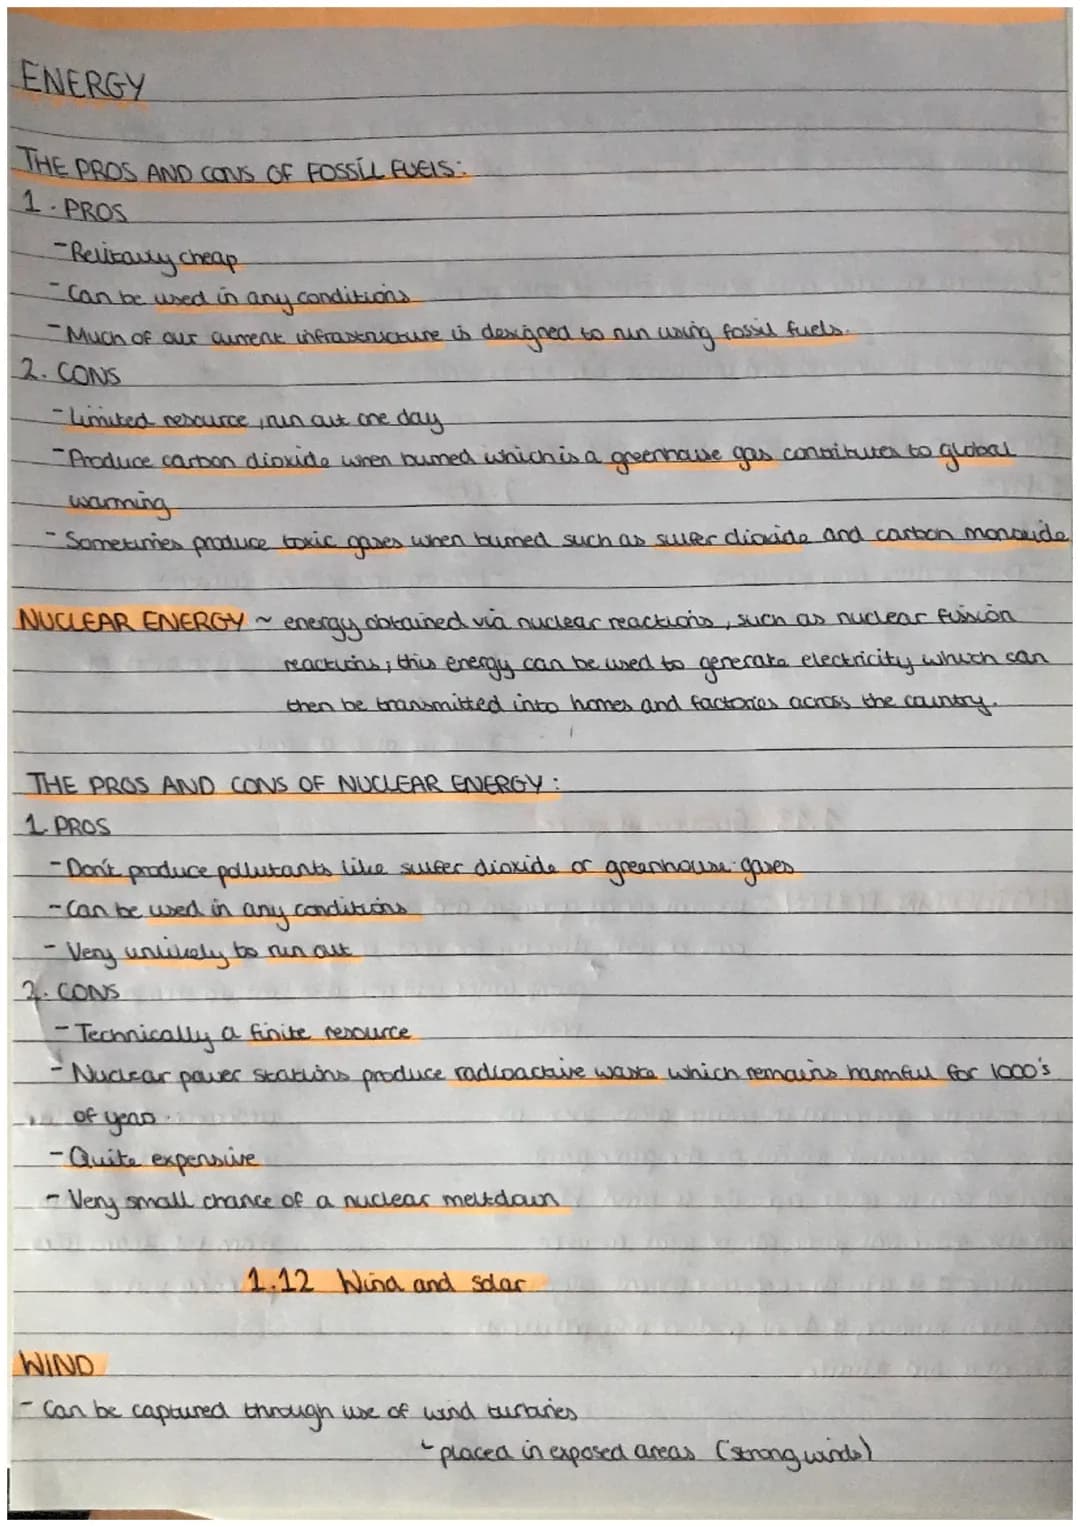 ENERGY
THE PROS AND CONS OF FOSSIL FUELS:
1. PROS
- Relitavly cheap
- Can be used in any conditions
- Much of our current infrastructure is designed to run using fossil fuels.
2. CONS
- Limited resource, run out one day
- Produce carbon dioxide when burned which is a greenhouse gas contributes to global
warming
- Sometimes produce toxic gases when burned such as sulfer dioxide and carbon monoxide
NUCLEAR ENERGY ~ energy obtained via nuclear reactions, such as nuclear fission
reactions; this energy can be used to generate electricity which can
then be transmitted into homes and factories across the country.
THE PROS AND CONS OF NUCLEAR ENERGY:
1. PROS
- Don't produce pollutants like sulfer dioxide or greenhouse gases
- Can be used in any conditions
- Very unlikely to run out
2. CONS
- Technically a finite resource
- Nuclear power stations produce radioactive waste which remains harmful for 1000's
of years.
- Quite expensive
- Very small chance of a nuclear meltdown
1.12 Wind and solar
WIND
- Can be captured through use of wind turbines
placed in exposed areas (strong winds)